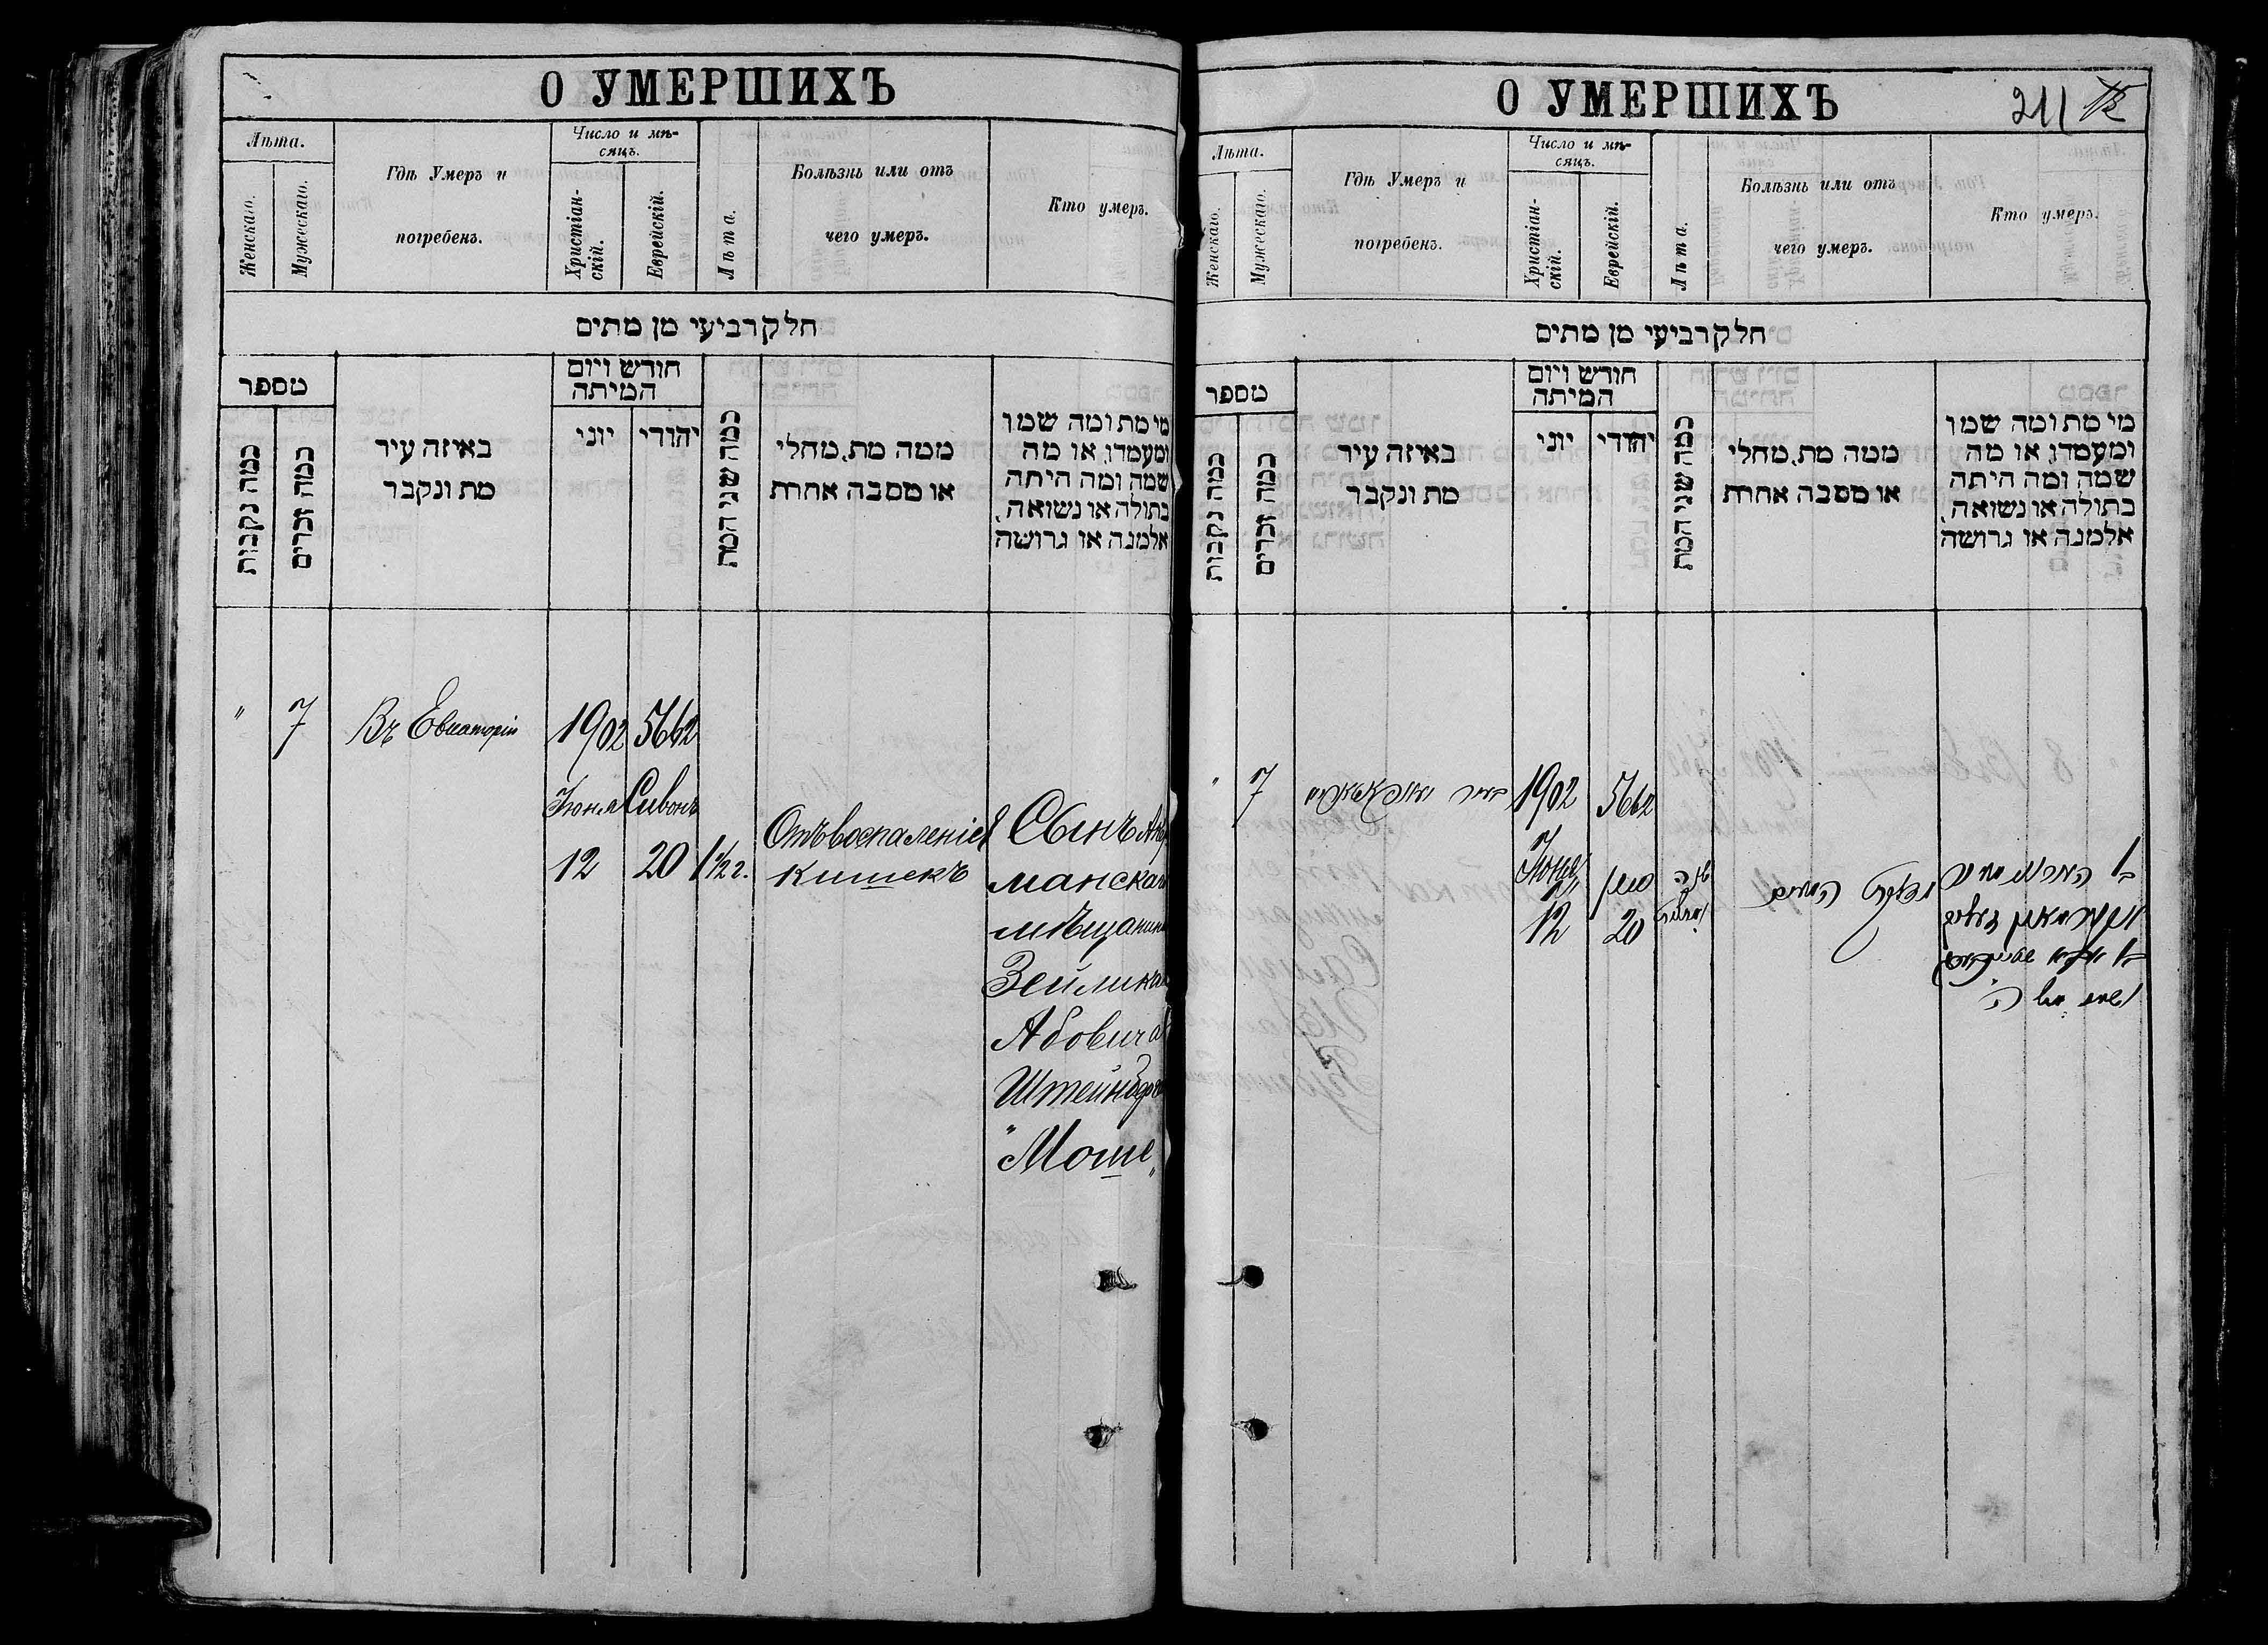 О УМЕРШИХЪ
Лѣта.
Женскаго.
Мужескаго.
Гдѣ Умеръ и
погребенъ.
Число и мѣ-
сяцъ.
Христіан-
скій.
Еврейскій.
Лѣта.
Болѣзнь или отъ
чего умеръ.
Кто умеръ.
חלק רביעי מן מתים
מספר
כמה נקבות
כמה זכרים
באיזה עיר
מת ונקבר
חודש ויום
המיתה
יוני
יהודי
כמה שני המת
ממה מת, מחלי
או מסבה אחרת
מי מת ומה שמו
ומעמדו, או מה
שמה ומה היתה
בתולה או נשואה,
אלמנה או גרושה
" 7 Въ Евпаторіи 1902 5662
Іюня Сивонъ
12 20 1½ г.
Отъ воспаленія
кишекъ
Сынъ Акер
манскаго
мѣщанина
Зейлика
Абовича
Штейнберга
"Моше"
О УМЕРШИХЪ
211
Лѣта.
Женскаго.
Мужескаго.
Гдѣ Умеръ и
погребенъ.
Число и мѣ-
сяцъ.
Христіан-
скій.
Еврейскій.
Лѣта.
Болѣзнь или отъ
чего умеръ.
Кто умеръ.
חלק רביעי מן מתים
מספר
כמה נקבות
כמה זכרים
באיזה עיר
מת ונקבר
חודש ויום
המיתה
יוני
יהודי
כמה שני המת
ממה מת, מחלי
או מסבה אחרת
מי מת ומה שמו
ומעמדו, או מה
שמה ומה היתה
בתולה או נשואה,
אלמנה או גרושה
" 7
1902 5662
Іюня סיון
12 20